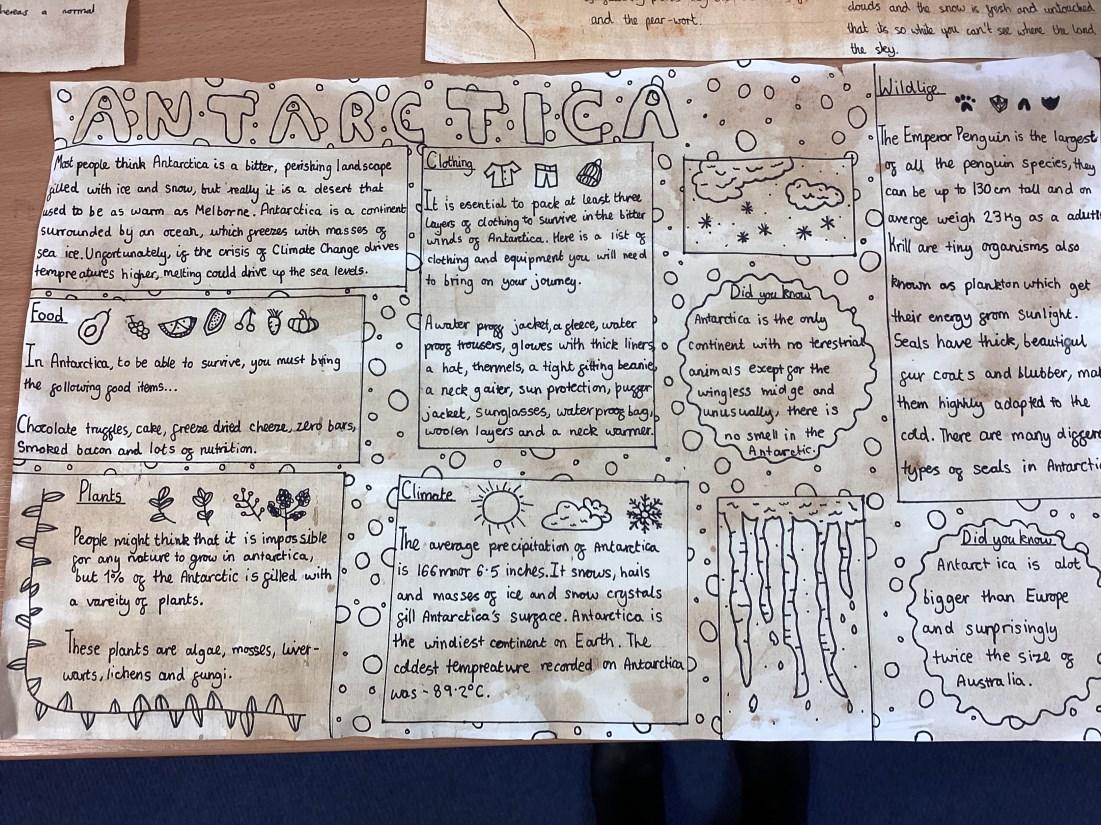 hereas a normal
and the pear-wort.
clouds and the snow is fresh and untouched
that its so while you can't see where the land
the sky.
ANTARCTICA
Most people think Antarctica is a bitter, perishing landscape
filled with ice and snow, but really it is a desert that
used to be as warm as Melborne. Antarctica is a continent
surrounded by an ocean, which freezes with masses of
sea ice. Unfortunately, if the crisis of Climate Change drives
tempreatures higher, melting could drive up the sea levels.
Food
In Antarctica, to be able to survive, you must bring
the following food items...
Chocolate truffles, cake, freeze dried cheeze, zero bars,
Smoked bacon and lots of nutrition.
Plants
People might think that it is impossible
for any nature to grow in antarctica,
but 1% of the Antarctic is filled with
a vareity of plants.
These plants are algae, mosses, liver-
warts, lichens and fungi.
Clothing
It is esential to pack at least three
layers of clothing to survive in the bitter
winds of Antarctica. Here is a list of
clothing and equipment you will need
to bring on your journey.
A water proff jacket, a fleece, water
proof trousers, glowes with thick liners,
a hat, thermels, a tight fitting beanie,
a neck gaiter, sun protection, puffer
jacket, sunglasses, water proof bag,
woolen layers and a neck warmer.
Climate
The average precipitation of Antarctica
is 166mm or 6.5 inches. It snows, hails
and masses of ice and snow crystals
fill Antarctica's surface. Antarctica is
the windiest continent on Earth. The
coldest tempreature recorded on Antarctica
was -89.2°C.
Did you know
Antarctica is the only
continent with no terestrial
animals except for the
wingless midge and
unusually, there is
no smell in the
Antarctic.
Wildlife
The Emperor Penguin is the largest
of all the penguin species, they
can be up to 130cm tall and on
averge weigh 23Kg as a adult
Krill are tiny organisms also
known as plankton which get
their energy from sunlight.
Seals have thick, beautiful
fur coats and blubber, mak
them highly adapted to the
cold. There are many differe
types of seals in Antarcti
Did you know
Antarctica is alot
bigger than Europe
and surprisingly
twice the size of
Australia.